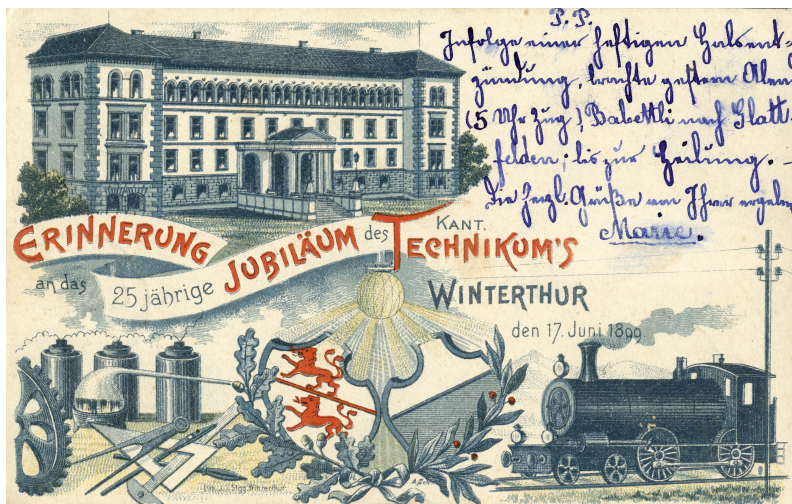 P. P.
Infolge einer heftigen Halsent-
zündung, brachte gestern Aben
(5 Uhr Zug) Babettli nach Glatt-
felden; bis zur Heilung. –
Die herzl. Grüße von Ihrer ergeben
Marie.
ERINNERUNG
an das 25 jährige JUBILÄUM des KANT. TECHNIKUM'S
WINTERTHUR
den 17. Juni 1899
Winterthur.